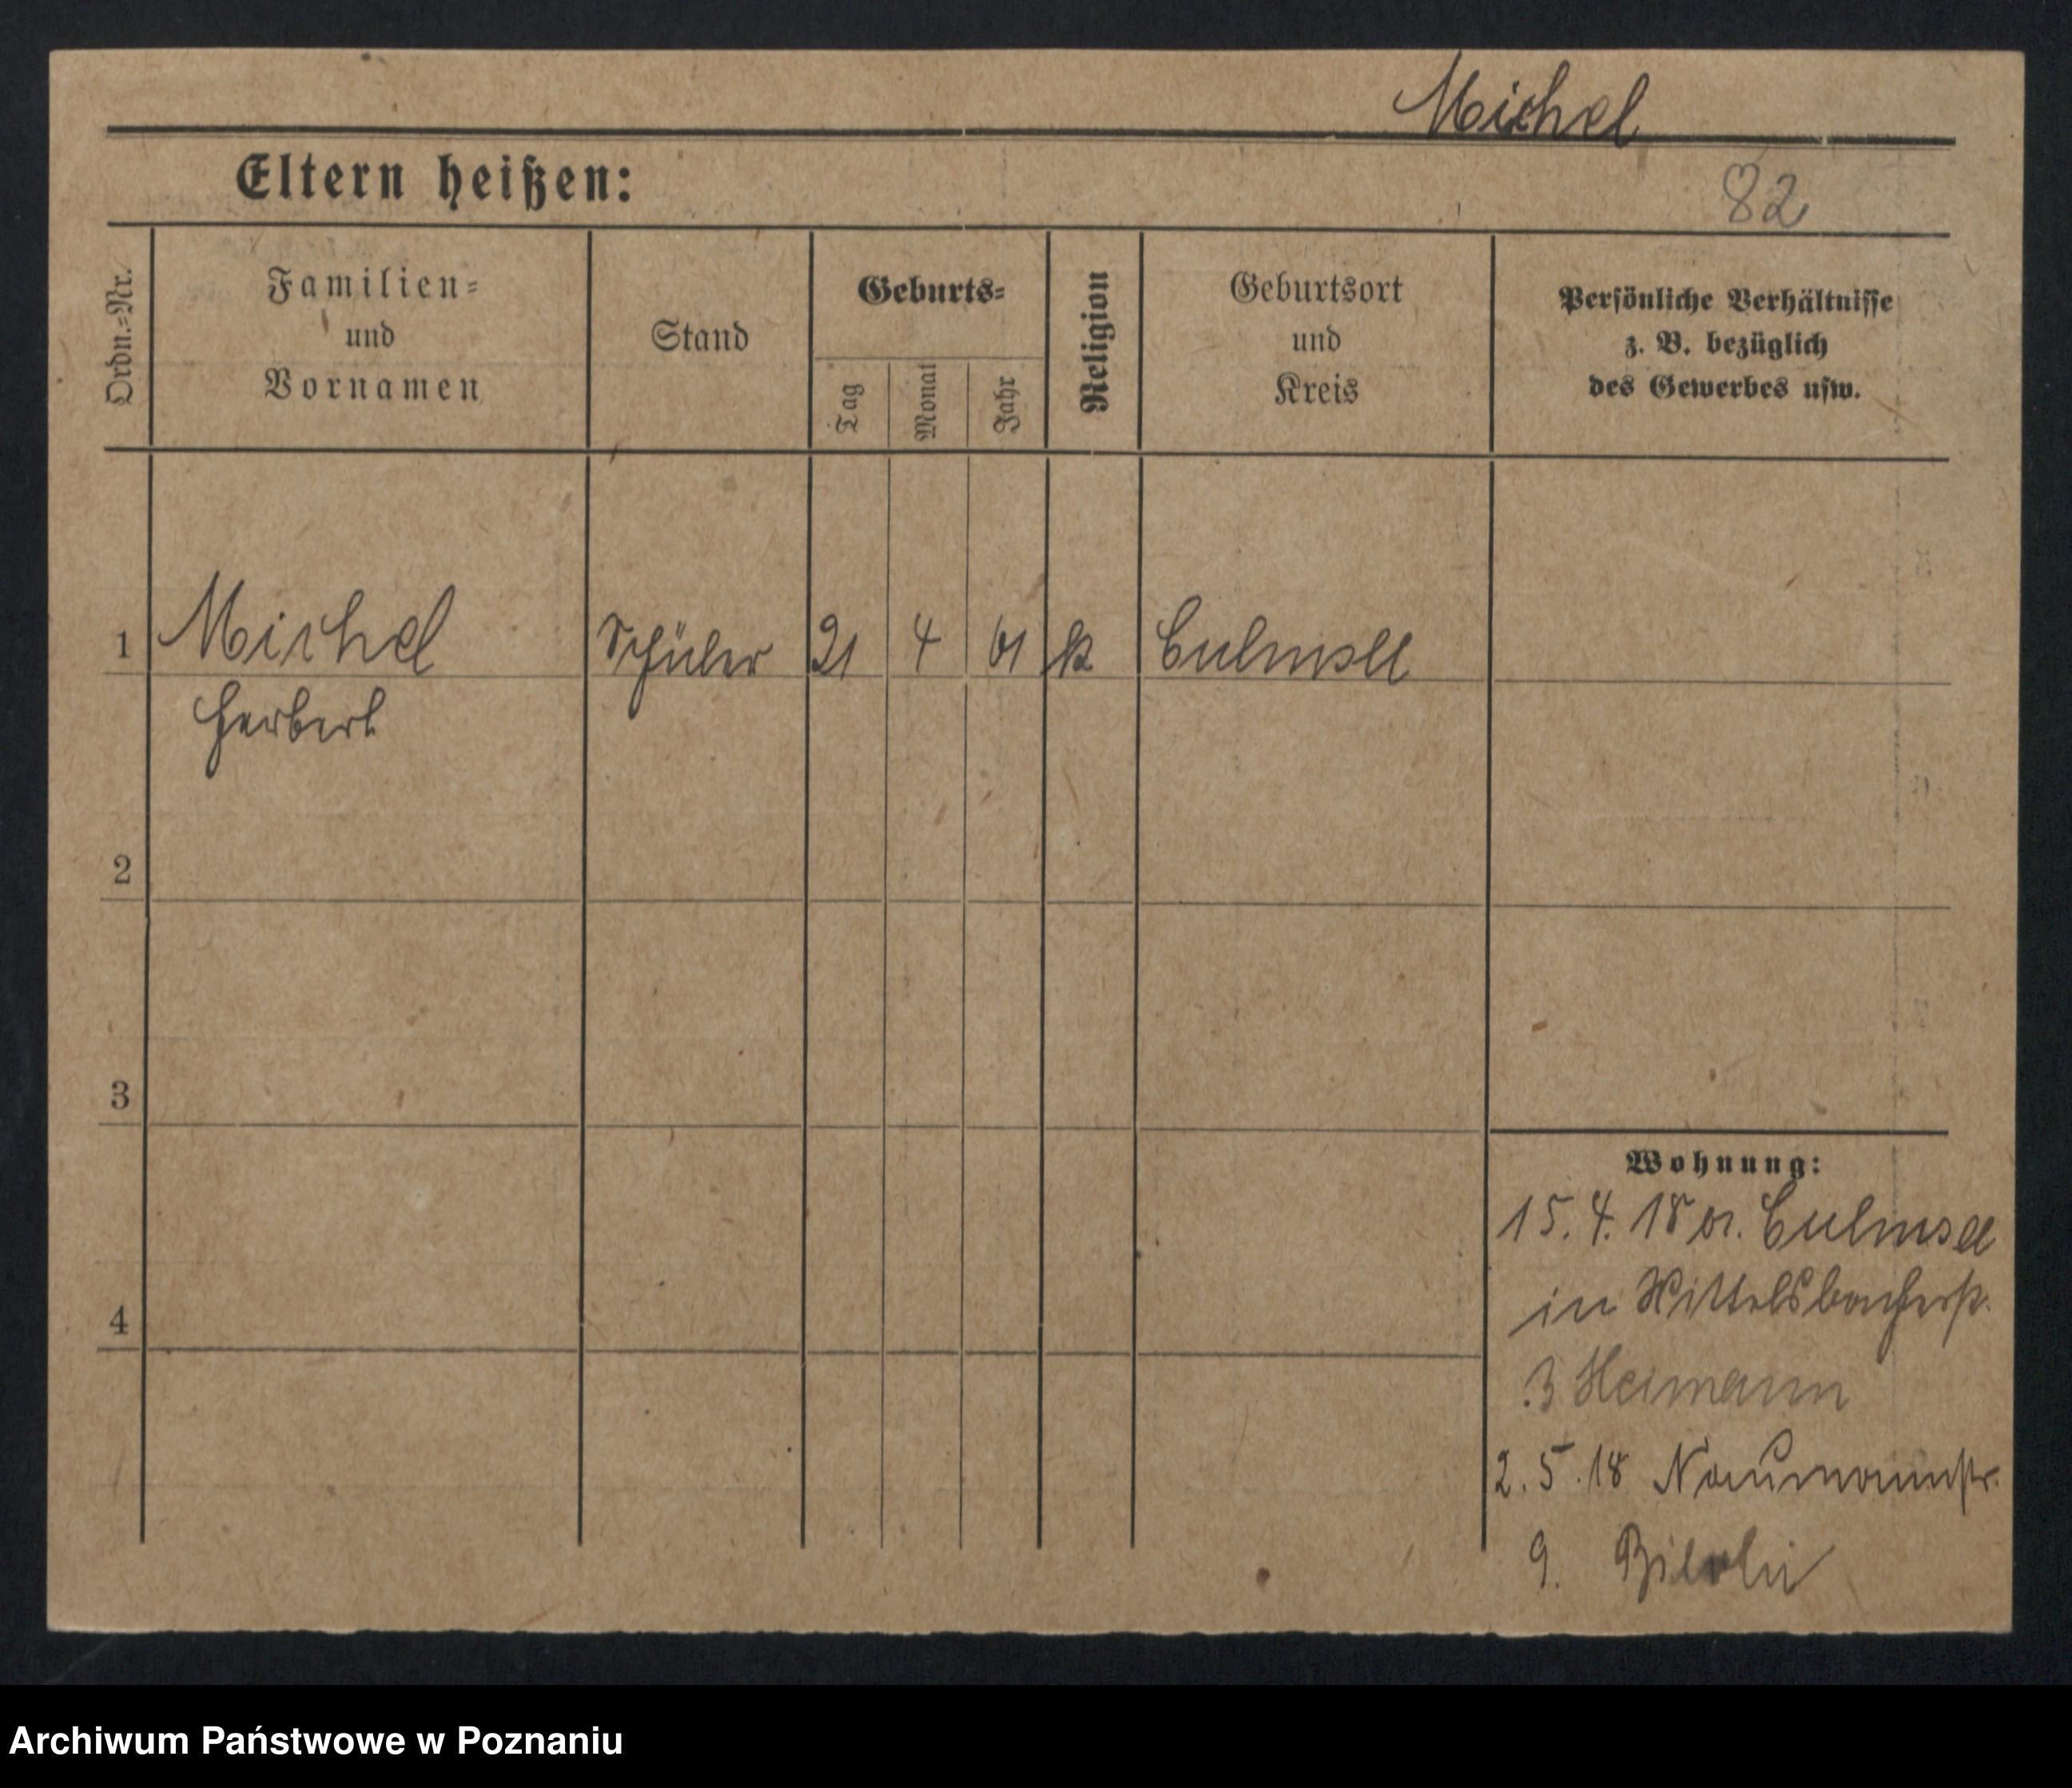 Michel
Eltern heißen:
82
Ordn.-Nr.
Familien-
und
Vornamen
Stand
Geburts-
Tag
Monat
Jahr
Religion
Geburtsort
und
Kreis
Persönliche Verhältnisse
z. B. bezüglich
des Gewerbes usw.
1 Michel Schüler 21 4 01 k Culmsee
Herbert
2
3
Wohnung:
15. 4. 18 a. Culmsee
4
in Wittelsbacherstr.
3 Heimann
2. 5. 18 Naumannstr.
9.
Archiwum Państwowe w Poznaniu